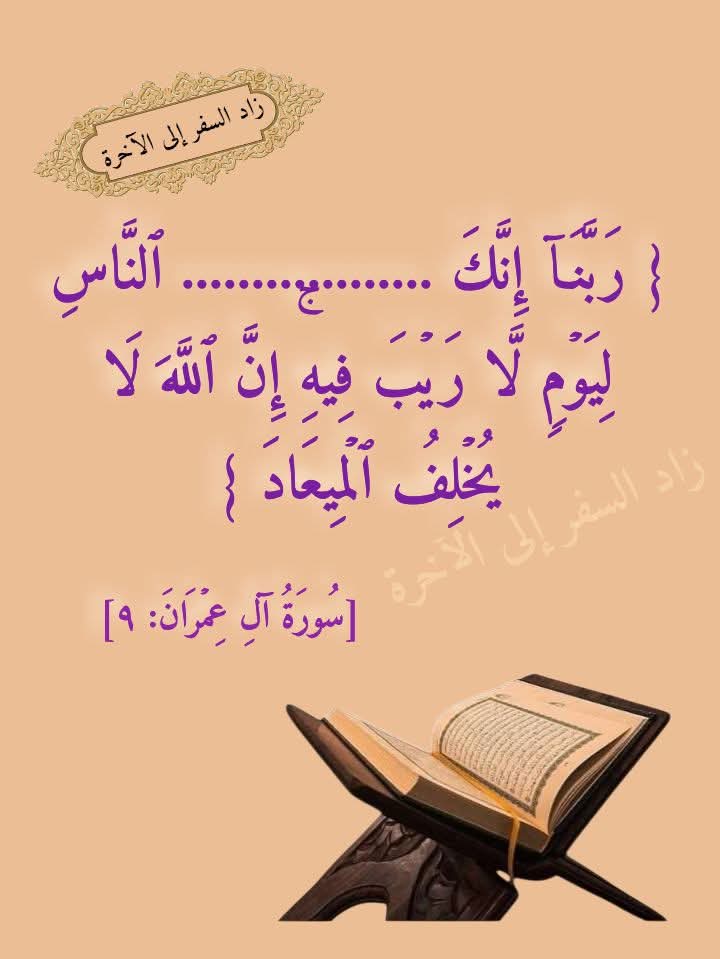 زاد السفر إلى الآخرة
{ رَبَّنَآ إِنَّكَ .................. ٱلنَّاسِ
لِيَوۡمٖ لَّا رَيۡبَ فِيهِۚ إِنَّ ٱللَّهَ لَا
يُخۡلِفُ ٱلۡمِيعَادَ }
زاد السفر إلى الآخرة
[سُورَةُ آلِ عِمۡرَانَ: ٩]